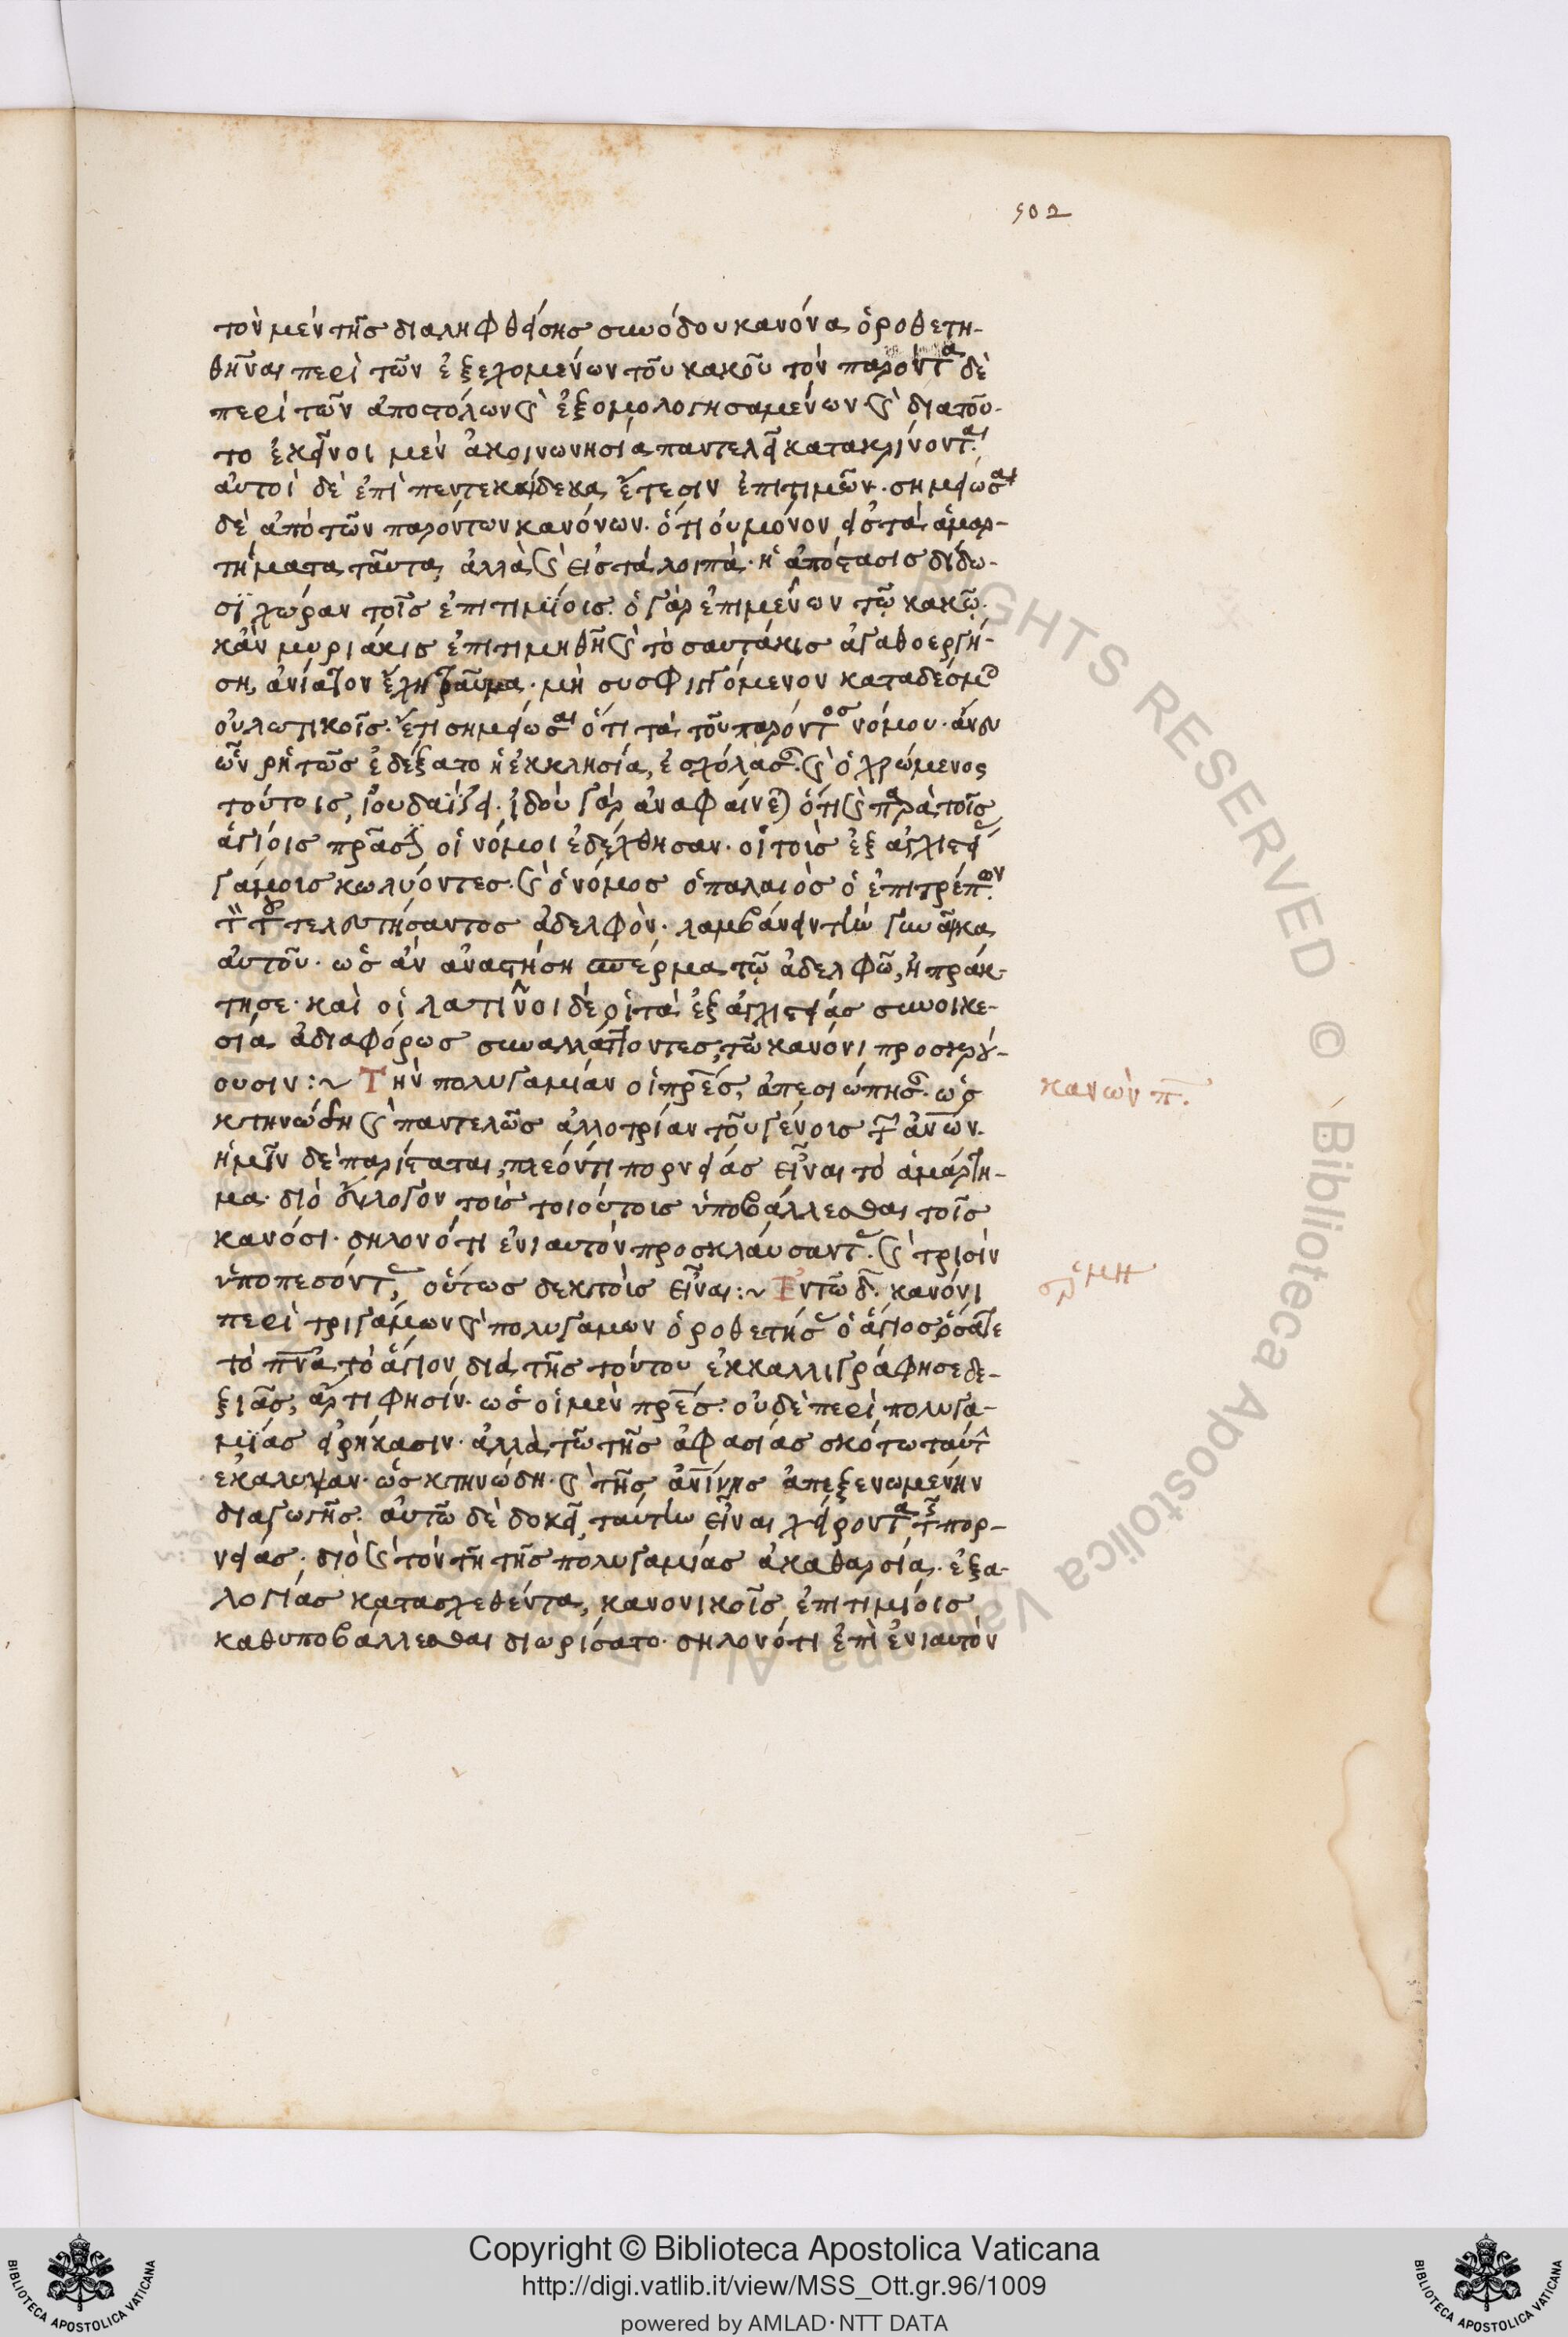 502
τὸν μὲν τῆς διαληφθείσης συνόδου κανόνα ὁροθετη-
θῆναι περὶ τῶν ἐξελομένων τοῦ κακοῦ τὸν παρόντα δὲ
περὶ τῶν ἀποστόλων ϛ̀ ἐξομολογησαμένων ϛ̀ διατοῦ-
το ἐκεῖνοι μὲν ἀκοινωνησία παντελεῖ κατακρίνονται.
αὐτοὶ δὲ ἐπὶ πεντεκαίδεκα ἔτεσιν ἐπιτιμῶν. σημείωσαι
δὲ ἀπὸ τῶν παρόντων κανόνων. ὅτι οὐ μόνον εἰς τὰ ἁμαρ-
τήματα ταῦτα ἀλλὰ ϛ̀ εἰς τὰ λοιπὰ. ἡ ἀπόστασις δίδω-
σι χώραν τοῖς ἐπιτιμίοις. ὁ γὰρ ἐπιμένων τῷ κακῷ.
κἂν μυριάκις ἐπιτιμηθῆ ϛ̀ τὸ σαυτάκις ἀγαθοεργή-
ση, ἀνίατον ἕλη τραῦμα. μὴ συσφιγγόμενον καταδέσμοις
οὐλωτικοῖς. ἔτι σημείωσαι ὅτι τὰ τοῦ παρόντος νόμου. ἄνευ
ὧν ῥητῶς ἐδέξατο ἡ ἐκκλησία, ἐσχόλασεν. ϛ̀ ὁ χρώμενος
τούτοις, ἰουδαΐζει. ἰδοὺ γὰρ ἀναφαίνεται ὅτι ϛ̀ παρὰ τοῖς
ἁγίοις πρᾶσι οἱ νόμοι ἐδέχθησαν. οἱ τοὶς ἐξ ἀγχιστεί
γάμοις κωλύοντες. ϛ̀ ὁ νόμος ὁ παλαιὸς ὁ ἐπιτρέπων
τὸν τοῦ τελευτήσαντος ἀδελφὸν. λαμβάνειν τὴν γυναῖκα
αὐτοῦ. ὡς ἂν ἀναστήση σπέρμα τῷ ἀδελφῷ, ἠπράκ-
τησε. καὶ οἱ λατῖνοι δὲ οἱ τὰ ἐξ ἀγχιστείας συνοικε-
σία ἀδιαφόρως συναλλάττοντες, τῶ κανόνι προσκρού-
ουσιν:~ Τὴν πολυγαμίαν οἱ πρες, ἀπεσιώπησαν. ὡς
κανὼν π.
κτηνώδη ϛ̀ παντελῶς ἀλλοτρίαν τοῦ γένοις τῶν ἀνων.
ἡμῖν δὲ παρίσταται, πλεόν τι πορνείας εἶναι τὸ ἁμάρτη-
μα. διὸ εὔλογον τοὶς τοιούτοις ὑποβάλλεσθαι τοῖς
κανόσι. δηλονότι ἐνιαυτὸν προσκλαύσαντας. ϛ̀ τρισὶν
ὑποπεσόντας, οὕτως δεκτοὶς εἶναι:~ Ἐν τῶ δ. κανόνι
περὶ τριγάμων ϛ̀ πολυγάμων ὁροθετήσας ὁ ἅγιος ὃς ἅτε
τὸ πνα τὸ ἅγιον διὰ τῆς τούτου ἐκκαλλιγράφησε δε-
ξιᾶς, ἄρτι φησίν. ὡς οἱ μὲν πρες. οὐδὲ περὶ πολυγα-
μίας εἰρήκασιν. ἀλλὰ τῶ τῆς ἀφασίας σκότω ταύτην
ἐκάλυψαν. ὡς κτηνώδη. ϛ̀ τῆς ἀνίνης ἀπεξενωμένην
διαγωγῆς. αὐτῶ δὲ δοκεῖ ταύτην εἶναι χείροντα τῆς πορ-
νείας. διὸ ϛ̀ τὸν τῆ τῆς πολυγαμίας ἀκαθαρσία. ἐξα-
λογίας κατασχεθέντα, κανονικοῖς ἐπιτιμίοις
καθυποβάλλεσθαι διωρίσατο. δηλονότι ἐπὶ ἐνιαυτὸν
Copyright © Biblioteca Apostolica Vaticana
http://digi.vatlib.it/view/MSS_Ott.gr.96/1009
powered by AMLAD·NTT DATA